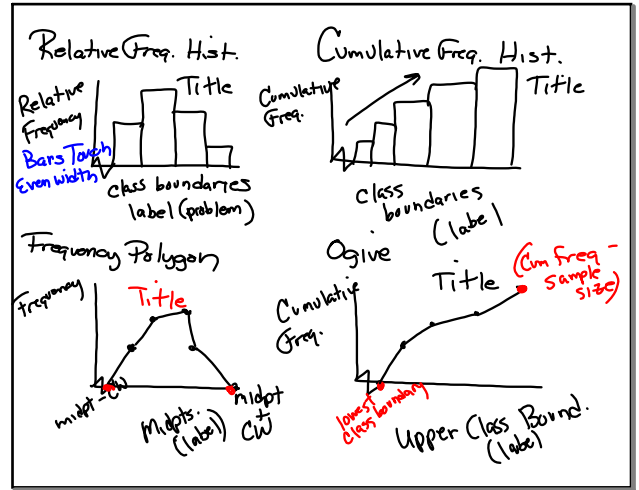 Relative Freq. Hist.
Title
Relative
Frequency
Bars Touch
Even width
class boundaries
label (problem)
Cumulative Freq. Hist.
Title
Cumulative
Freq.
class
boundaries
(label)
Frequency Polygon
Title
Frequency
midpt - CW
Midpts.
(label)
midpt
+
CW
Ogive
Title
(Cum freq -
sample
size)
Cumulative
Freq.
lowest
class boundary
Upper Class Bound.
(label)